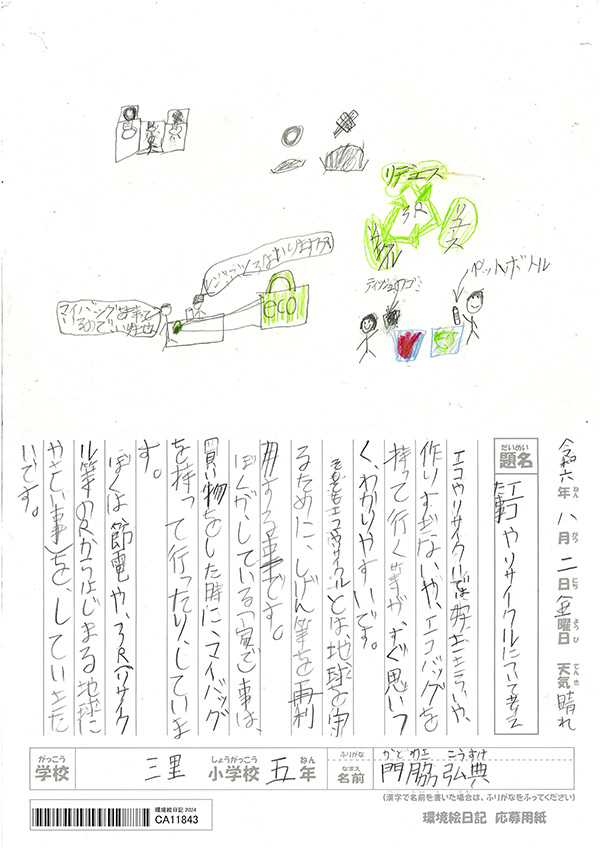 リデュース
3R
リユース
リサイクル
レジブクロはいりますか
マイバッグがあって
るのでいいです
eco
ティッシュのゴミ
ペットボトル
令和六年八月二日金曜日 天気晴れ
ねん がつ にち ようび てんき
だいめい
題名
エコやリサイクルについて考え
た事
エコやリサイクルでは、好ききらいや、
作りすぎないや、エコバッグを
持って行く等が、すぐ思いつ
く、わかりやすいです。
そもそもエコやリサイクルとは、地球を守
るために、しげん等を再利
用する事です。
ぼくがしている(家で)事は、
買い物をした時に、マイバッグ
を持って行ったり、していま
す。
ぼくは節電や、3R(リサイク
ル等のRからはじまる地球に
やさしい事)を、していきた
いです。
がっこう しょうがっこう ねん ふりがな かどわき こうすけ
学校 三里 小学校 五年 名前 門脇 弘典
なまえ
(漢字で名前を書いた場合は、ふりがなをふってください)
環境絵日記 2024
CA11843
環境絵日記 応募用紙